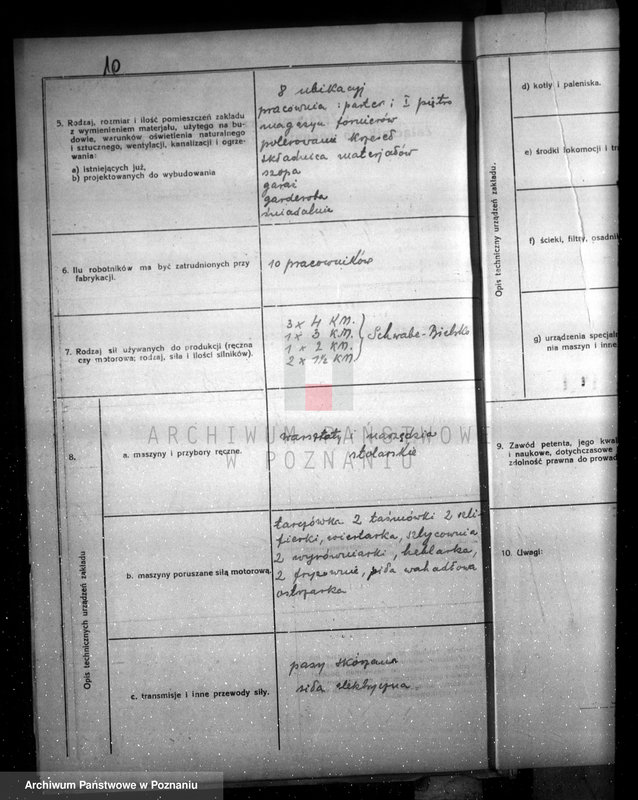 10
5. Rodzaj, rozmiar i ilość pomieszczeń zakładu
z wymienieniem materjału, użytego na bu-
dowie, warunków oświetlenia naturalnego
i sztucznego, wentylacji, kanalizacji i ogrze-
wania:
a) istniejących już,
b) projektowanych do wybudowania
8 ubikacyj
pracownia : parter i I piętro
magazyn fornierów
polerownia krzeseł
składnica materjałów
szopa
garaż
garderoba
śniadalnia
6. Ilu robotników ma być zatrudnionych przy
fabrykacji.
10 pracowników
7. Rodzaj sił używanych do produkcji (ręczna
czy motorowa; rodzaj, siła i ilości silników).
3 x 4 KM.
1 x 3 KM.
1 x 2 KM.
2 x 1½ KM.
Schwabe-Bielsko
8.
Opis technicznych urządzeń zakładu
a. maszyny i przybory ręczne.
warsztaty i narzędzia
stolarskie
b. maszyny poruszane siłą motorową.
tarczówka 2 taśmówki 2 szli-
fierki, wiertarka, sztycownia
2 wyrówniarki, heblarka,
2 frezownie, piła wahadłowa
ostrzarka
c. transmisje i inne przewody siły.
pasy skórzane
siła elektryczna
Opis techniczny urządzeń zakładu.
d) kotły i paleniska.
e) środki lokomocji i
f) ścieki, filtry,
g) urządzenia
nia maszyn i inne
9. Zawód petenta, jego
i naukowe, dotychczasowe
zdolność prawna do
10. Uwagi:
ARCHIWUM PAŃSTWOWE
W POZNANIU
Archiwum Państwowe w Poznaniu